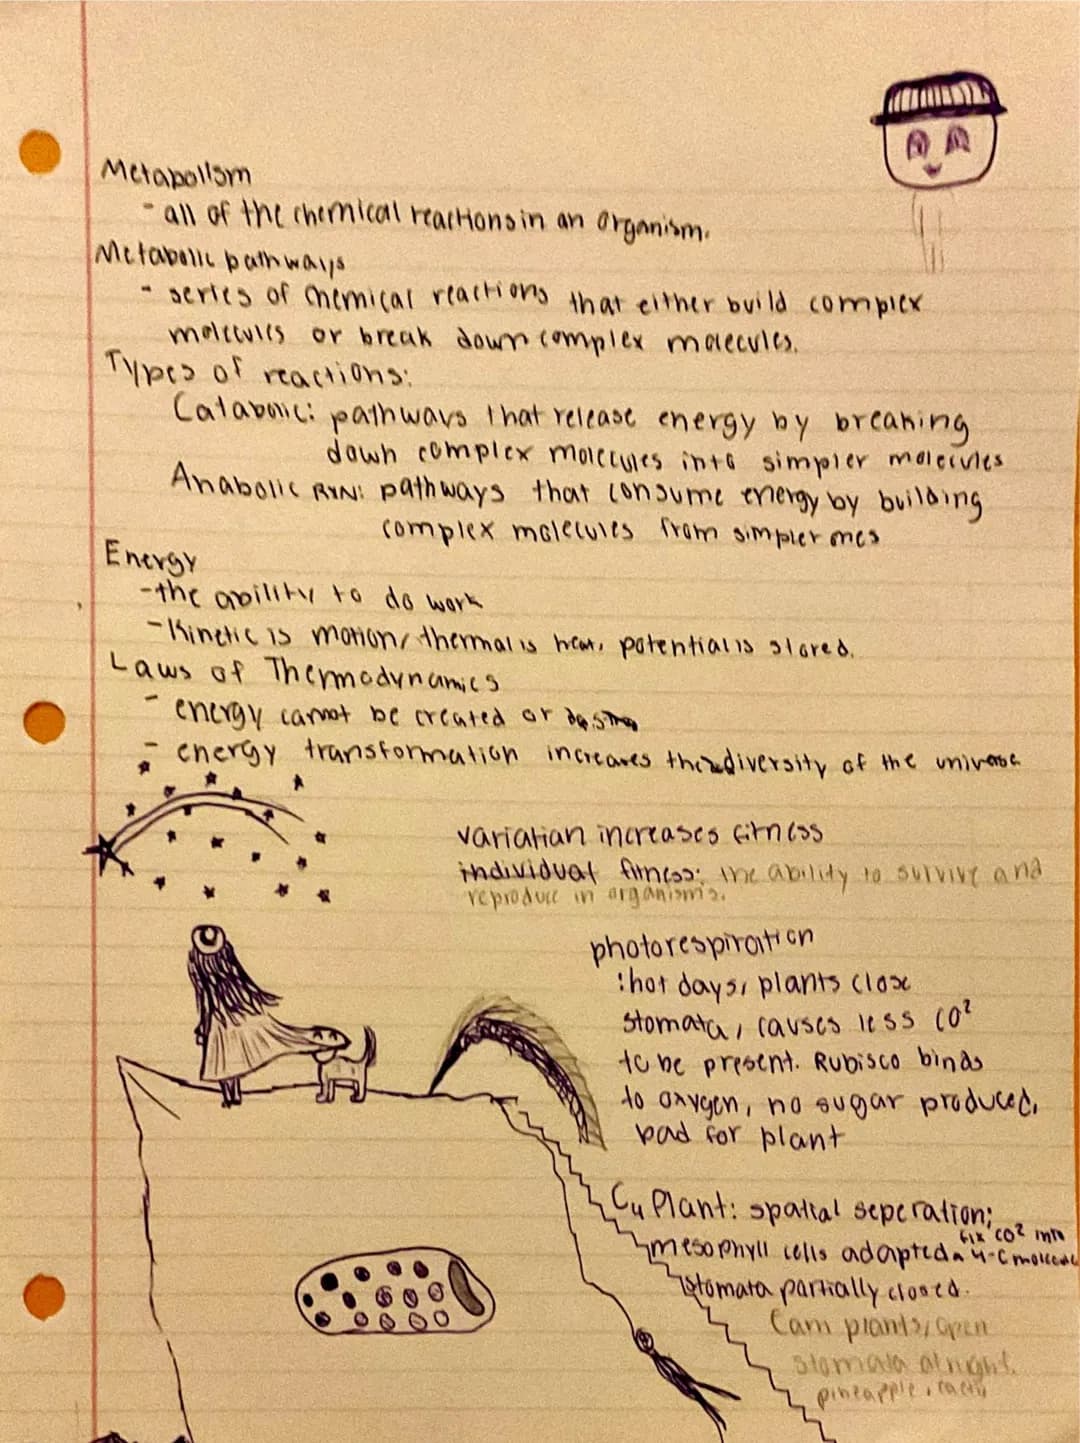 Metabolism
- all of the chemical reactions in an organism.
Metabolic pathways
- series of chemical reactions that either build complex
molecules or break down complex molecules.
Types of reactions:
Catabolic: pathways that release energy by breaking
down complex molecules into simpler molecules
Anabolic RXN: pathways that consume energy by building
complex molecules from simpler ones
Energy
- the ability to do work
- Kinetic is motion, thermal is heat, potential is stored.
Laws of Thermodynamics
- energy cannot be created or
- energy transformation increases the diversity of the universe
variation increases fitness
individual fitness: the ability to survive and
reproduce in organisms.
photorespiration
: hot days, plants close
stomata, causes less CO²
to be present. Rubisco binds
to oxygen, no sugar produced,
bad for plant
C4 Plant: spatial seperation;
fix CO² into
mesophyll cells adapted a 4-C molecule
stomata partially closed.
Cam plants, open
stomata at night.
pineapple, cacti